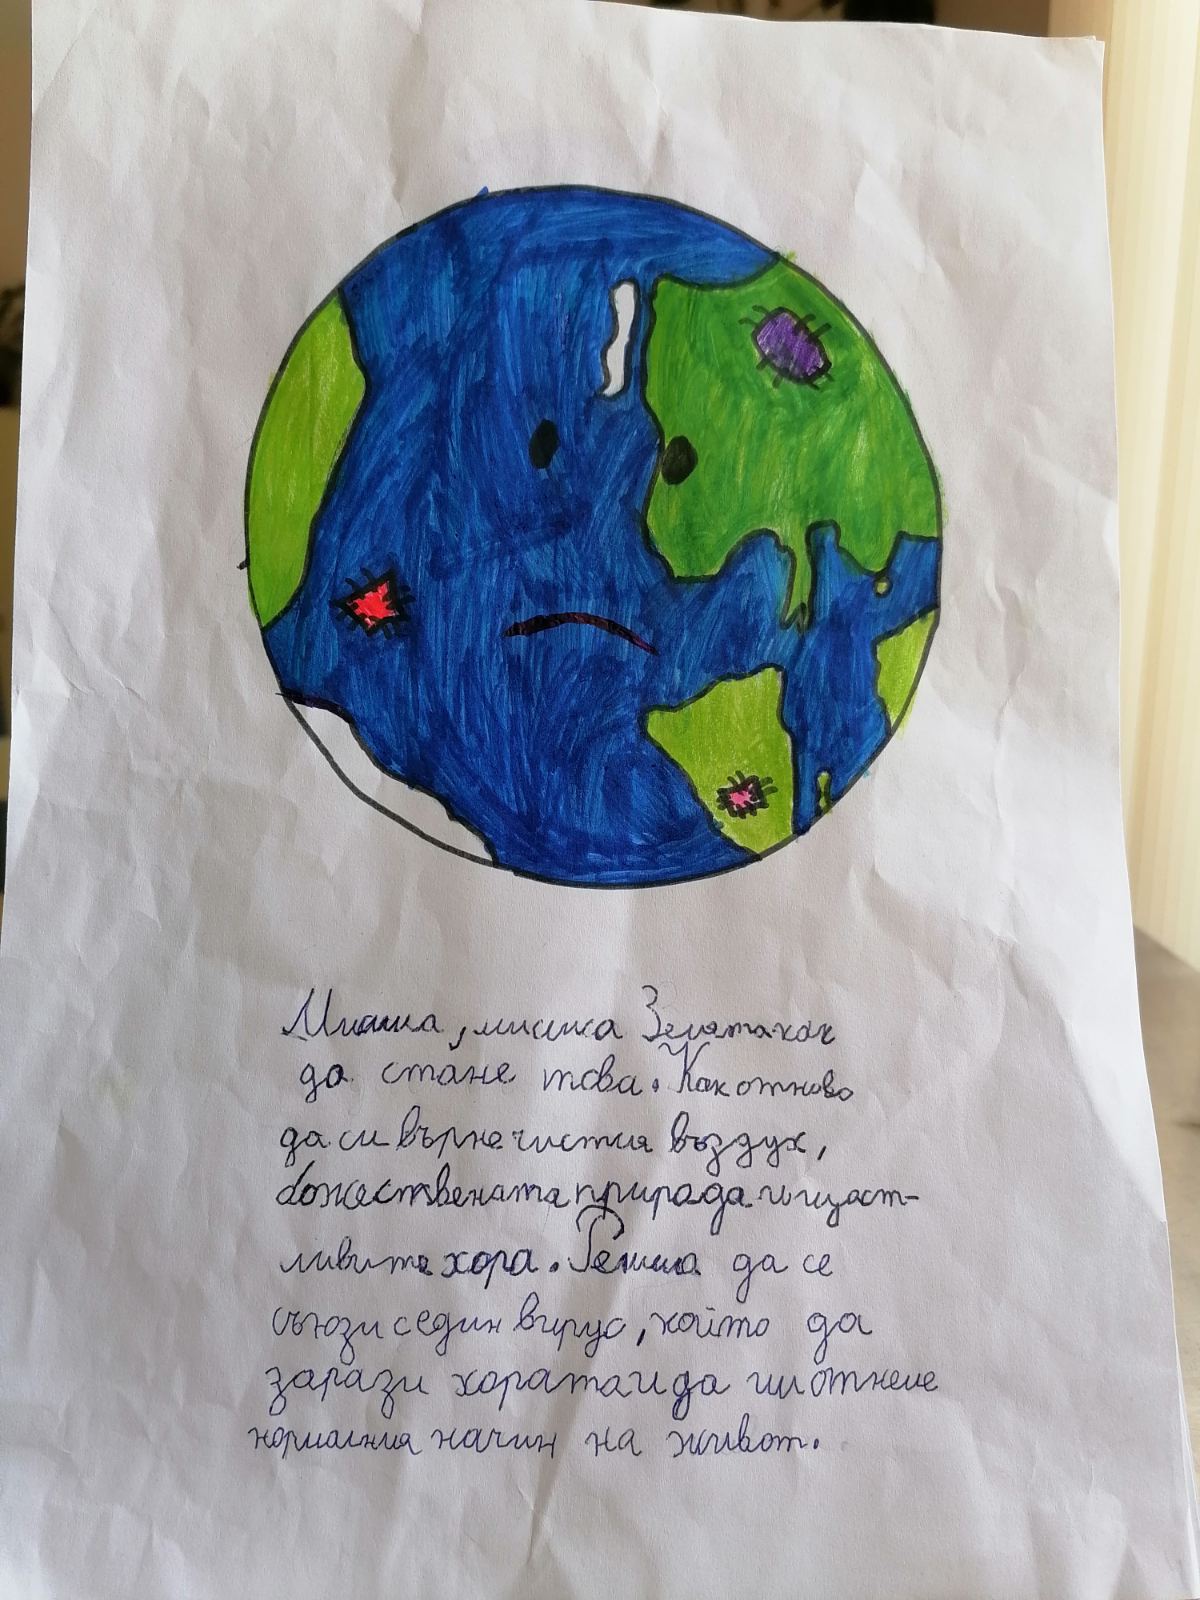 Мисли, мисли Земята как
да стане това. Как отново
да си върне чистия въздух,
божествената природа и щаст-
ливите хора. Реши да се
съюзи с един вирус, който да
зарази хората и да им отнеме
нормалния начин на живот.